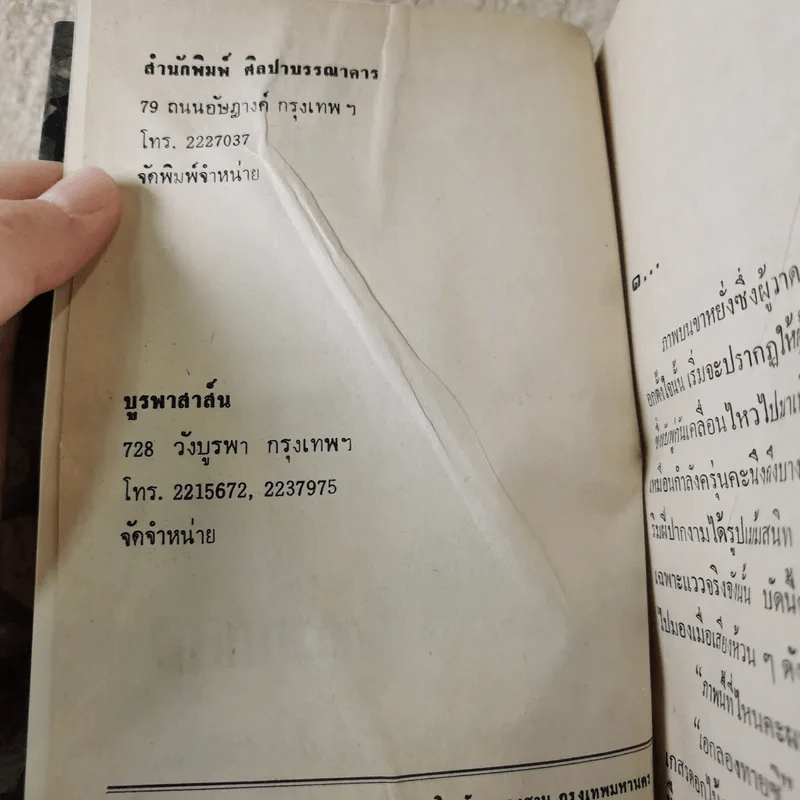 สำนักพิมพ์ ศิลปาบรรณาคาร
79 ถนนอัษฎางค์ กรุงเทพ ฯ
โทร. 2227037
จัดพิมพ์จำหน่าย
บูรพาสาส์น
728 วังบูรพา กรุงเทพฯ
โทร. 2215672, 2237975
จัดจำหน่าย
กรุงเทพมหานคร
๑...
ภาพบนขาหยั่งซึ่งผู้วาด
เริ่มจะปรากฏให้
เคลื่อนไหวไปมา
เหมือนกำลังครุ่นคะนึงถึงบาง
ริมฝีปากงามได้รูปเม้มสนิท
เฉพาะแววจริงจังนั้น บัดนี้
ไปมองเมื่อเสียงห้วน ๆ ดัง
“ภาพนี้ที่ไหนคะ
“เอกลองทาย